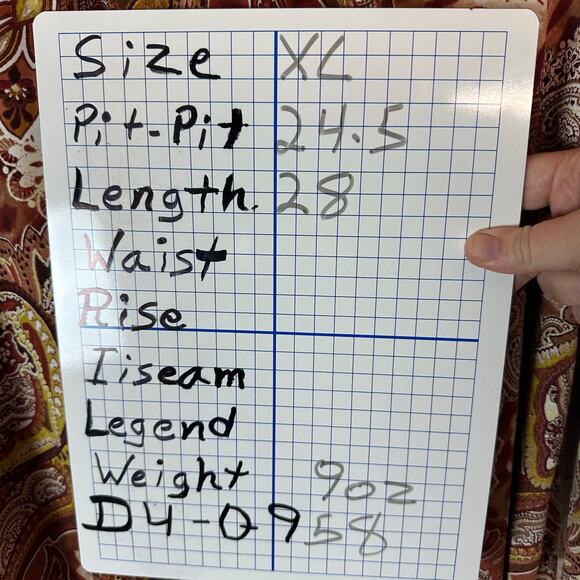 Size XL
Pit-Pit 24.5
Length. 28
Waist
Rise
Iiseam
Legend
Weight 9oz
D4-0958